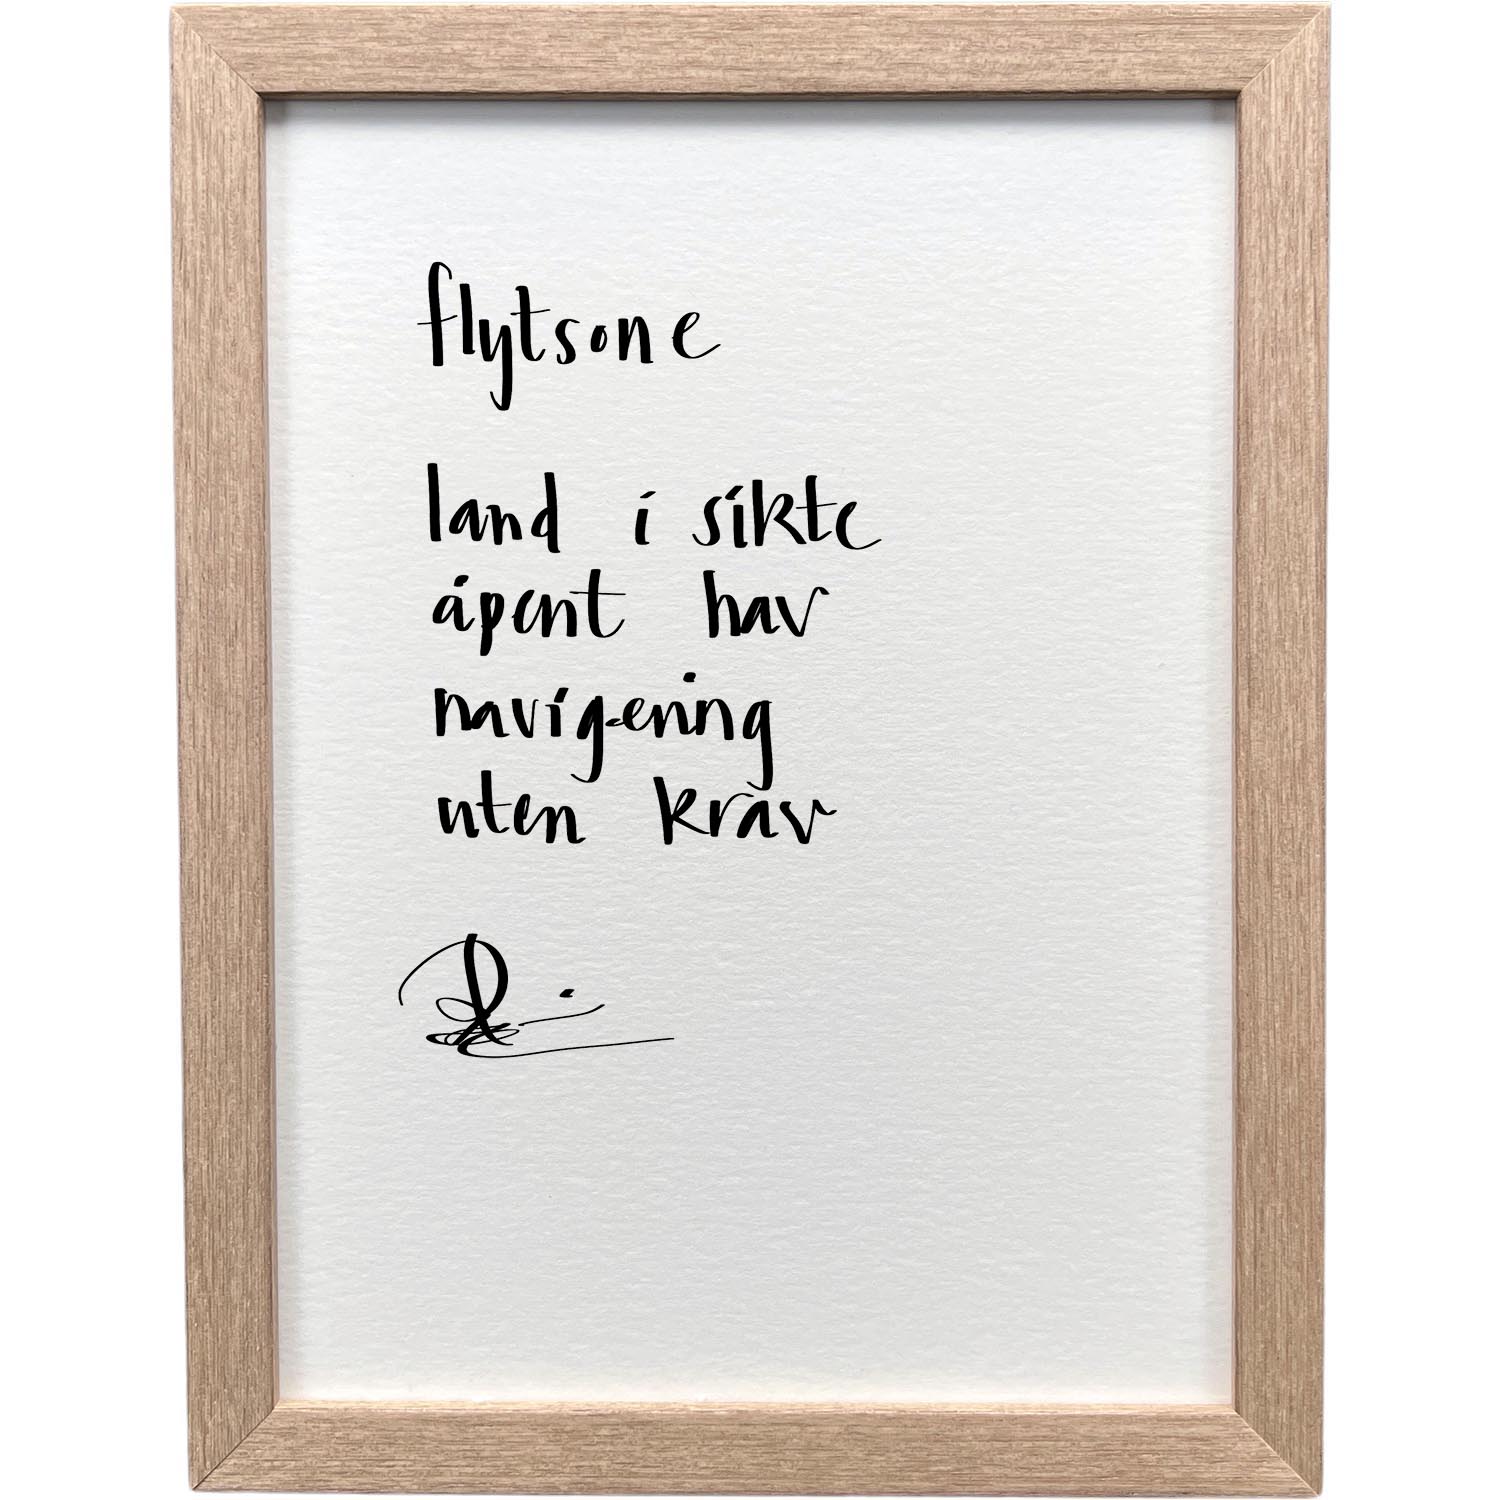 flytsone
land i sikte
åpent hav
navigering
uten krav